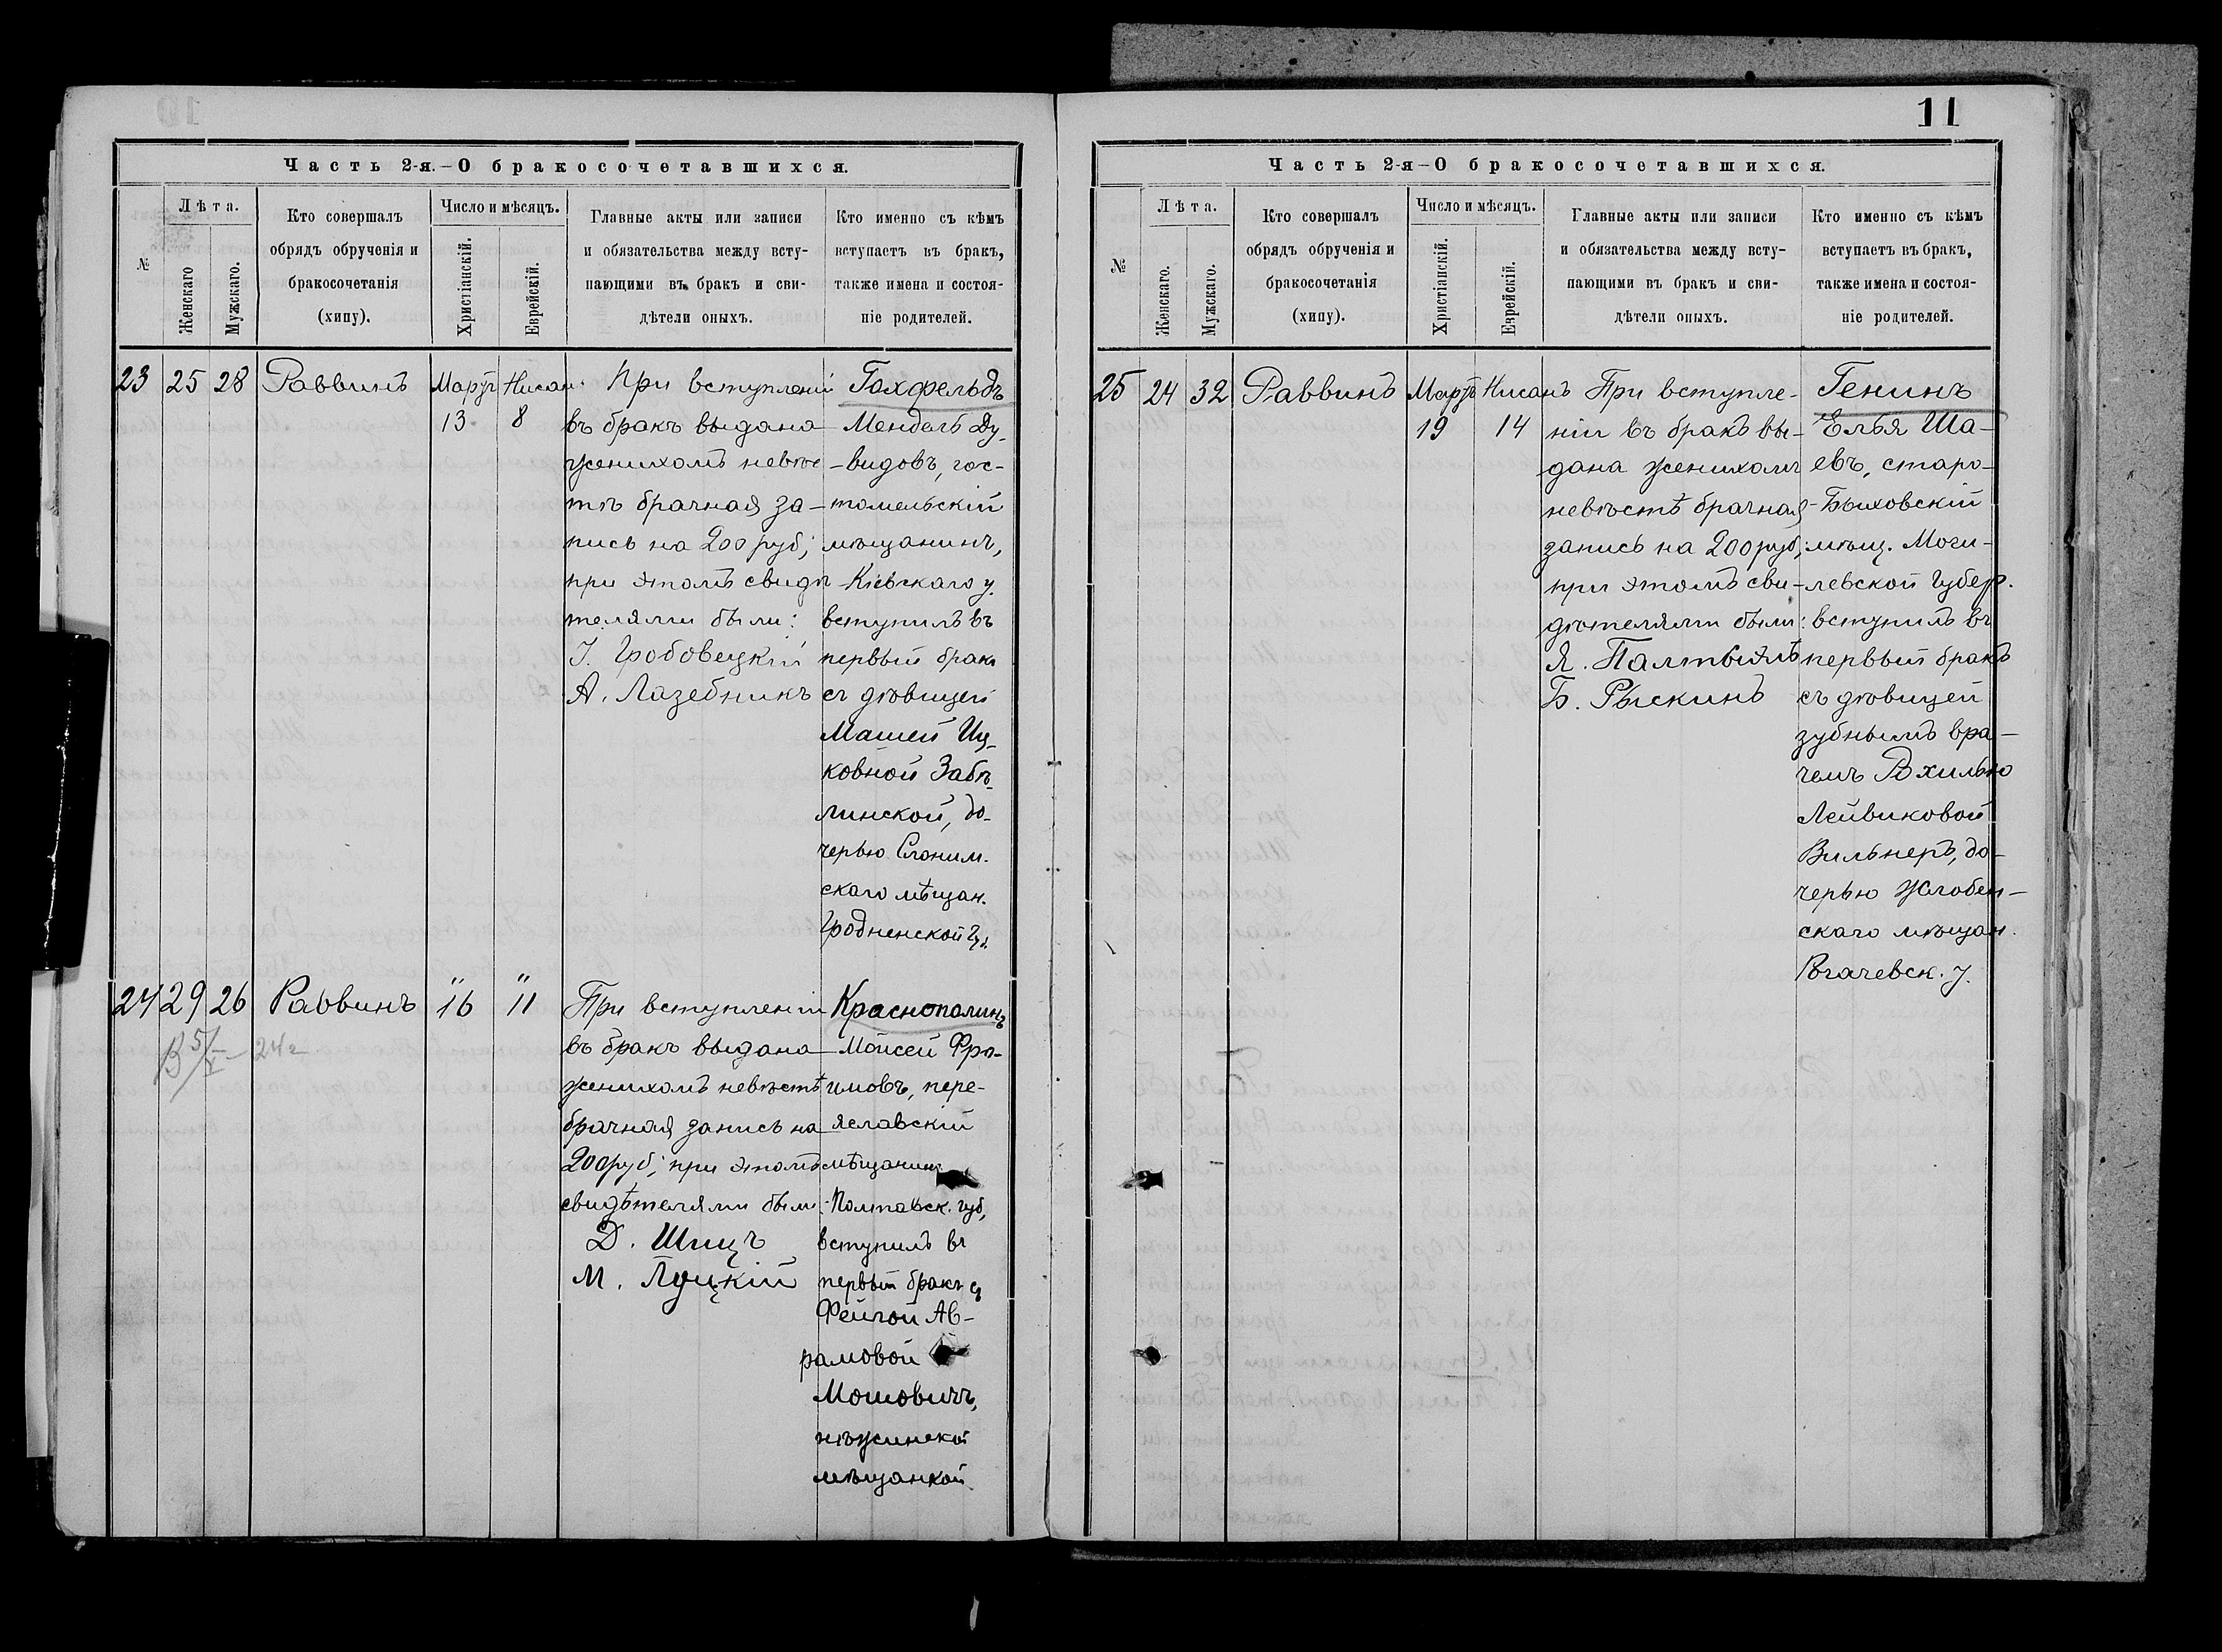 Часть 2-я.–О бракосочетавшихся.
№
Лѣта.
Женскаго
Мужскаго.
Кто совершалъ
обрядъ обрученія и
бракосочетанія
(хипу).
Число и мѣсяцъ.
Христіанскій.
Еврейскій.
Главные акты или записи
и обязательства между всту-
пающими въ бракъ и сви-
дѣтели оныхъ.
Кто именно съ кѣмъ
вступаетъ въ бракъ,
также имена и состоя-
ніе родителей.
23 25 28 Раввинъ
Мартъ
13
Нисан
8
При вступленіи
въ бракъ выдана
женихомъ невѣс
тѣ брачная за-
пись на 200 руб;
при этомъ свидѣ
телями были:
І. Гробовецкій
А. Лазебникъ
Гохфельдъ
Мендель Ду-
-видовъ, гос-
томельскій
мѣщанинъ,
Кіевскаго у.
вступилъ въ
первый бракъ
съ дѣвицей
Машей Иц-
ковной Забѣ-
линской, до-
черью Слоним-
скаго мѣщан.
Гродненской Гу.
24 29 26 Раввинъ
" 16
" 11
24 г
При вступленіи
въ бракъ выдана
женихомъ невѣстѣ
брачная запись на
200 руб; при этомъ
свидѣтелями были:
Д. Шицъ
М. Луцкій
Краснополинъ
Моисей Фро-
имовъ, пере-
яславскій
мѣщанинъ
Полтавск. губ,
вступилъ въ
первый бракъ съ
Фейгой Аб-
рамовой
Мошовичъ,
нѣжинской
мѣщанкой
11
Часть 2-я–О бракосочетавшихся.
№
Лѣта.
Женскаго.
Мужскаго.
Кто совершалъ
обрядъ обрученія и
бракосочетанія
(хипу).
Число и мѣсяцъ.
Христіанскій.
Еврейскій.
Главные акты или записи
и обязательства между всту-
пающими въ бракъ и сви-
дѣтели оныхъ.
Кто именно съ кѣмъ
вступаетъ въ бракъ,
также имена и состоя-
ніе родителей.
25 24 32 Раввинъ
Мартъ
19
Нисанъ
14
При вступле-
ніи въ бракъ вы-
дана женихомъ
невѣстѣ брачная
запись на 200 руб;
при этомъ сви-
дѣтелями были:
Я.
Б. Рыскинъ
Генинъ
Елья Ша-
евъ, старо-
-Быховскій
мѣщ. Моги-
левской Губер.
вступилъ въ
первый бракъ
съ дѣвицей
зубнымъ вра-
чемъ Рохилью
Лейвиковой
Вильнеръ, до-
черью Жлобен-
скаго мѣщан.
Рогачевск. у.